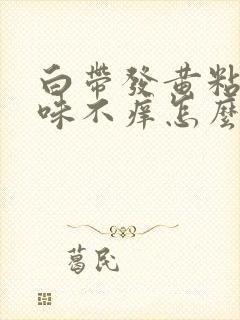 白帶發黃粘
味不痒怎麼
葛民